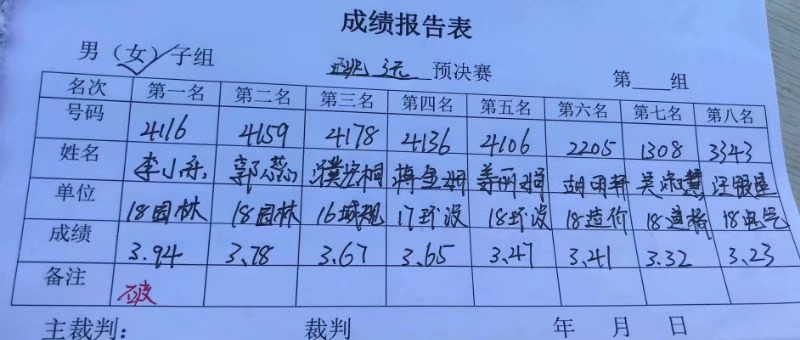 成绩报告表
男（女）子组 跳远 预决赛 第___组
名次 第一名 第二名 第三名 第四名 第五名 第六名 第七名 第八名
号码 4116 4159 4178 4136 4106 2205 1308 3343
姓名 李小 郭蕊 姜丽娟 胡雨轩 吴淑慧 汪银
单位 18园林 18园林 16城规 17环设 18环设 18造价 18造价 18电气
成绩 3.94 3.78 3.67 3.65 3.47 3.41 3.32 3.23
备注 破
主裁判： 裁判 年 月 日